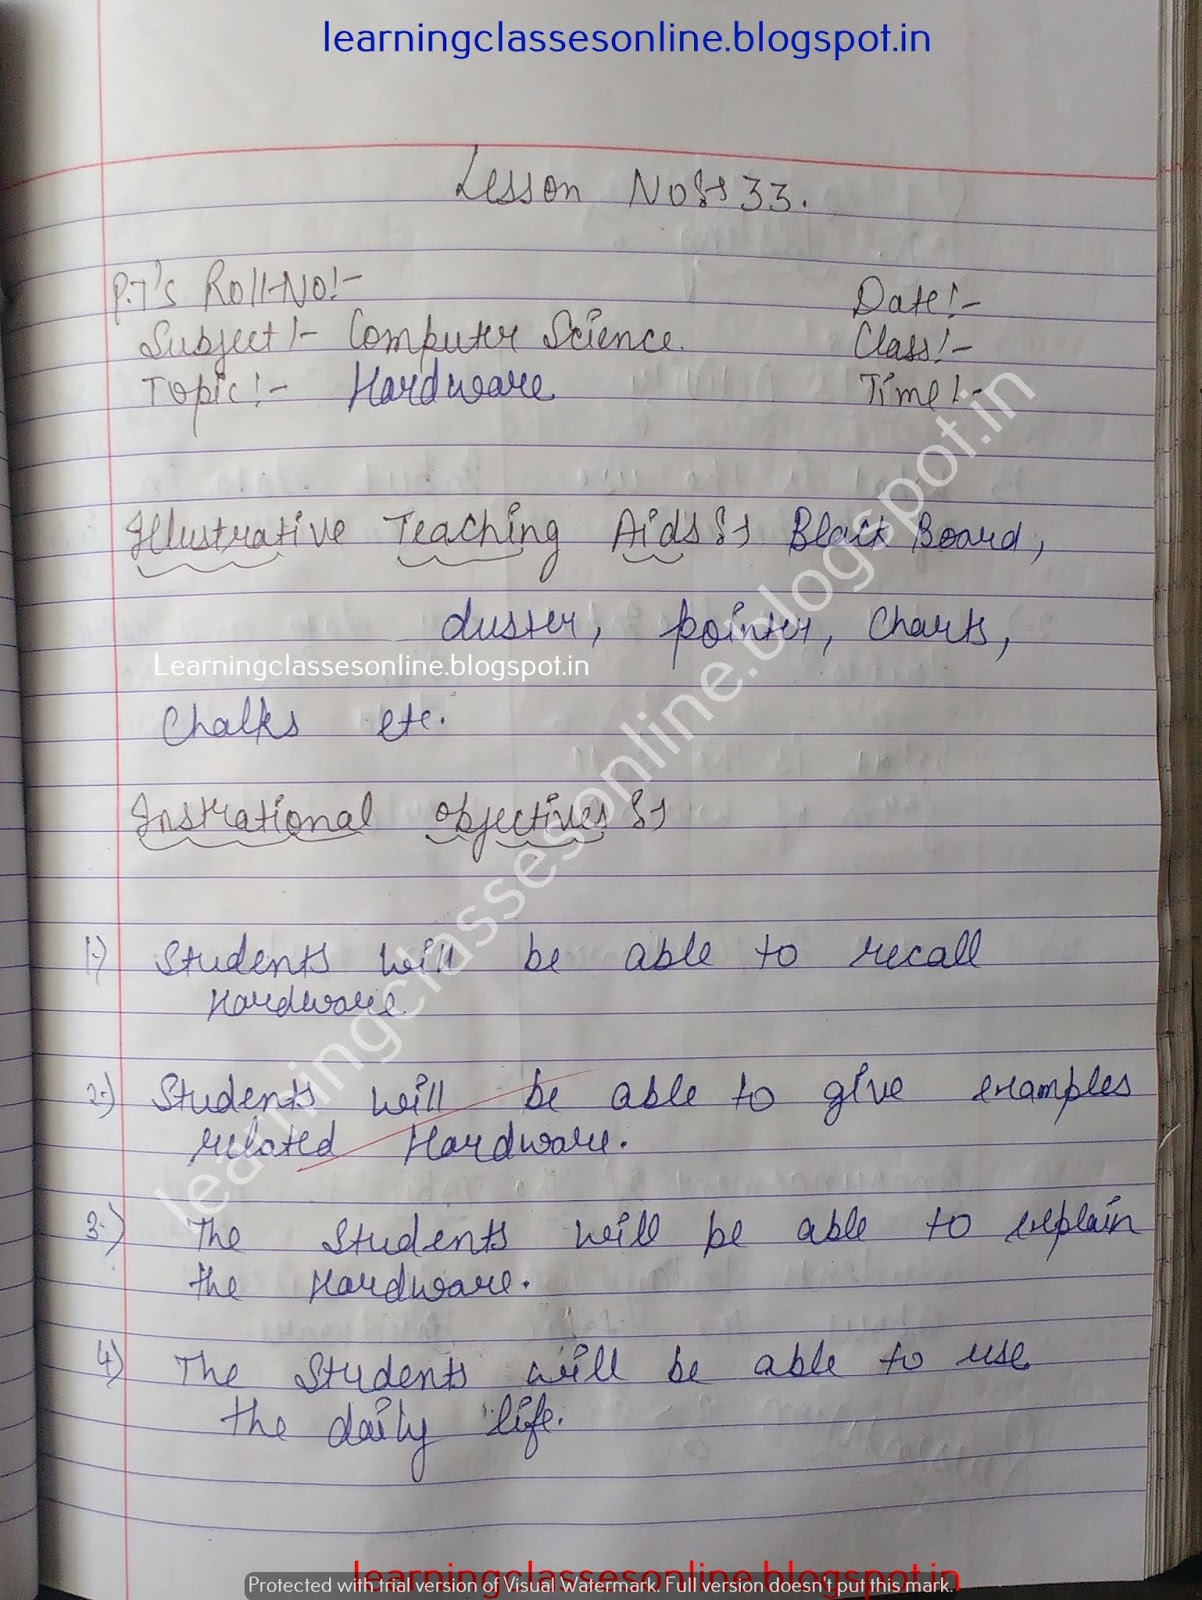 learningclassesonline.blogspot.in
Lesson No:- 33.
P.T's Roll-No:-
Date:-
Subject:- Computer Science.
Class:-
Topic:- Hardware
Time:-
Illustrative Teaching Aids:- Black Board,
duster, pointer, Charts,
Learningclassesonline.blogspot.in
Chalks etc.
Instrational Objectives:-
1.) Students will be able to recall
Hardware.
2.) Students will be able to give examples
related Hardware.
3.) The Students will be able to explain
the Hardware.
4.) The Students will be able to use
the daily life.
learningclassesonline.blogspot.in
learningclassesonline.blogspot.in
Protected with trial version of Visual Watermark. Full version doesn't put this mark.